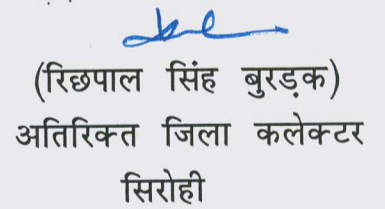 (रिछपाल सिंह बुरड़क)
अतिरिक्त जिला कलेक्टर
सिरोही